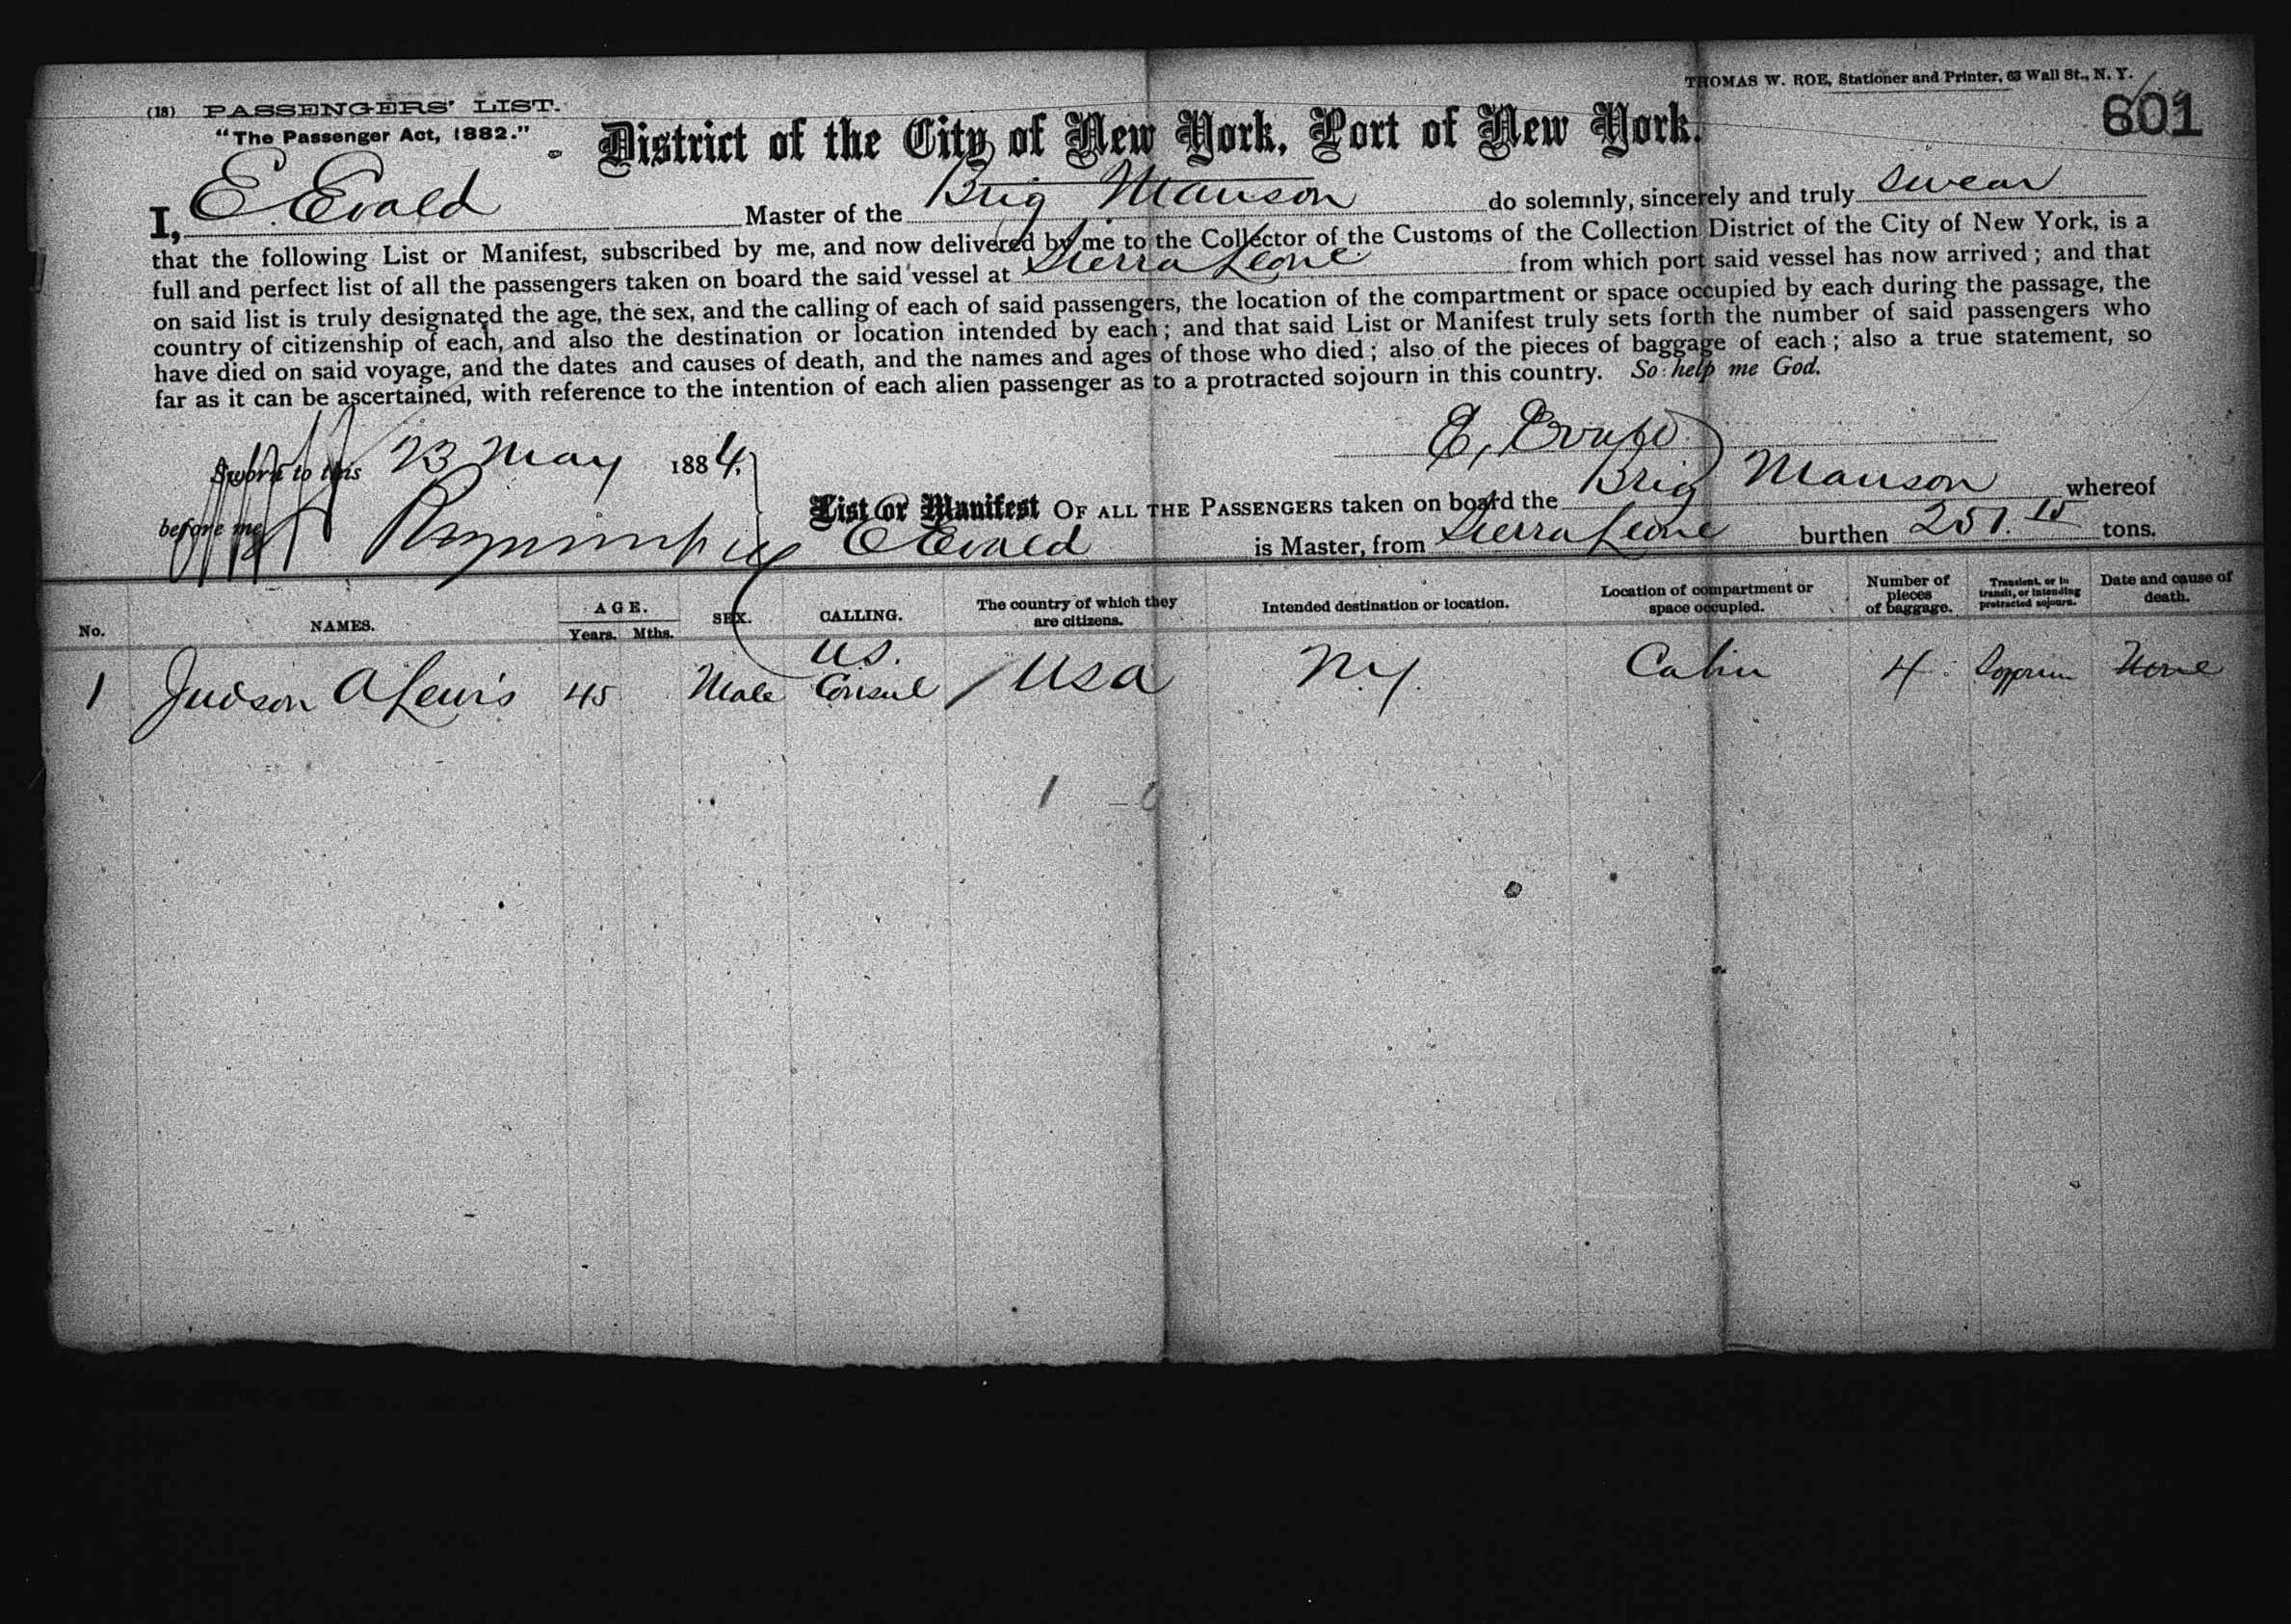 THOMAS W. ROE, Stationer and Printer, 63 Wall St., N. Y.
(18) PASSENGERS' LIST.
601
"The Passenger Act, 1882."
District of the City of New York, Port of New York.
I, E. Evald Master of the Brig Manson do solemnly, sincerely and truly swear
that the following List or Manifest, subscribed by me, and now delivered by me to the Collector of the Customs of the Collection District of the City of New York, is a
full and perfect list of all the passengers taken on board the said vessel at Sierra Leone from which port said vessel has now arrived; and that
on said list is truly designated the age, the sex, and the calling of each of said passengers, the location of the compartment or space occupied by each during the passage, the
country of citizenship of each, and also the destination or location intended by each; and that said List or Manifest truly sets forth the number of said passengers who
have died on said voyage, and the dates and causes of death, and the names and ages of those who died; also of the pieces of baggage of each; also a true statement, so
far as it can be ascertained, with reference to the intention of each alien passenger as to a protracted sojourn in this country. So help me God.
E, Evald
Sworn to this 23 May 1884,
before me
List or Manifest OF ALL THE PASSENGERS taken on board the Brig Manson whereof
E Evald is Master, from Sierra Leone burthen 251. 15 tons.
No. NAMES. AGE. Years. Mths. SEX. CALLING. The country of which they are citizens. Intended destination or location. Location of compartment or space occupied. Number of pieces of baggage. Transient, or in transit, or intending protracted sojourn. Date and cause of death.
1 Judson A Lewis 45 Male U.S. Consul / USA N.Y. Cabin 4 None
1 - 0